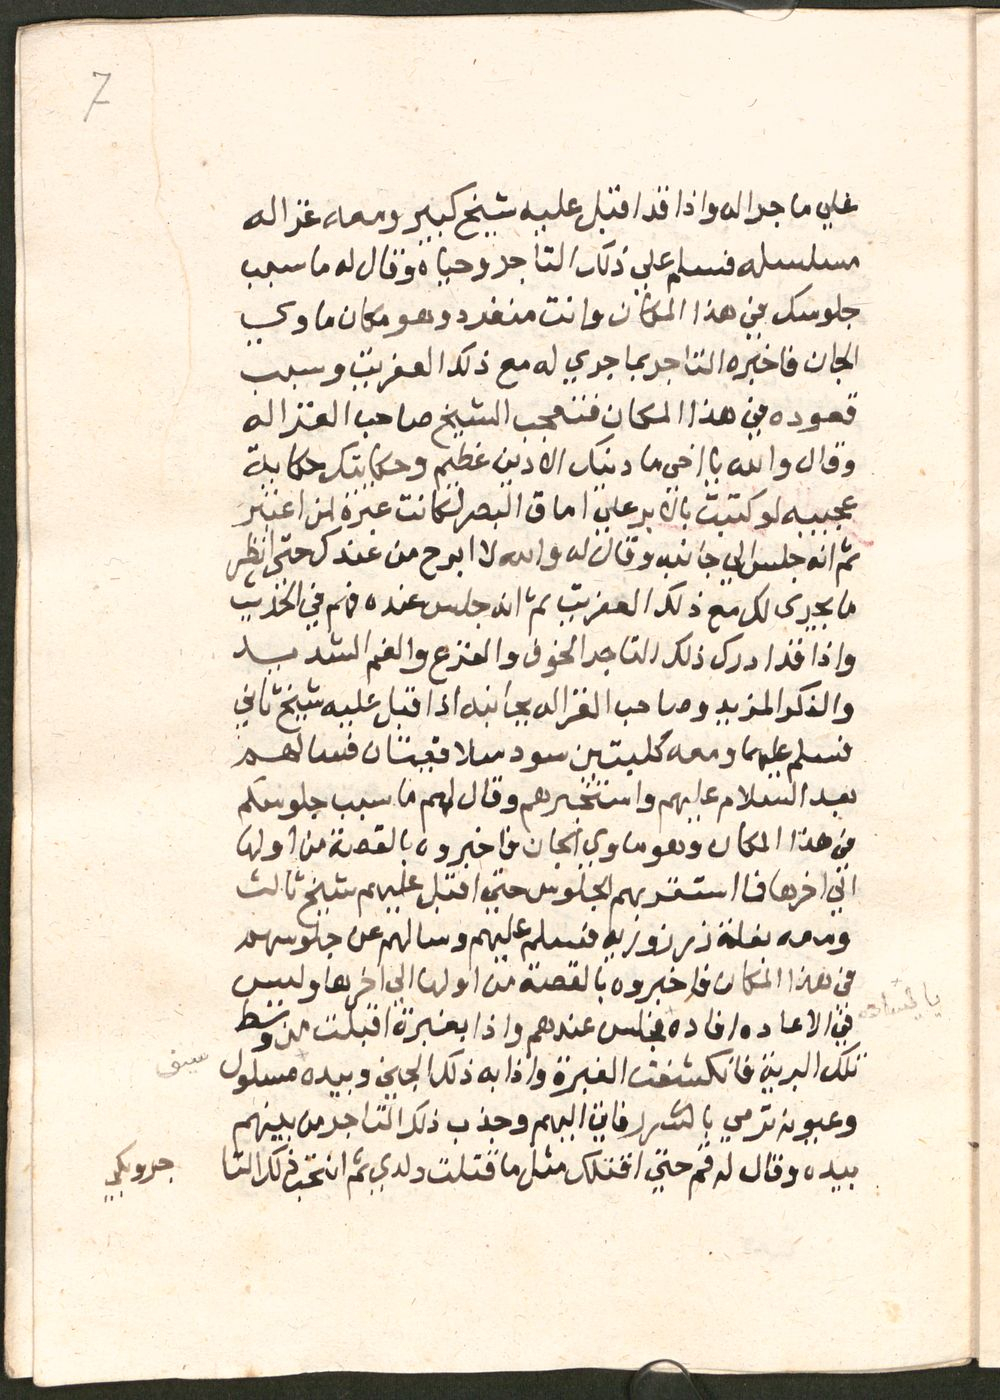 7
علي ما جراله واذا قد اقبل عليه شيخ كبير ومعه غزاله
مسلسله فسلم علي ذلك التاجر وحياه وقال له ما سبب
جلوسك في هذا المكان وانت منفرد وهو مكان ماوي
الجان فاخبره التاجر بما جري له مع ذلك العفريت وسبب
قعوده في هذا المكان فتعجب الشيخ صاحب الغزاله
وقال والله يا اخي ما دينك الا دين عظيم وحكايتك حكاية
عجيبه لو كتبت بالابر علي اماق البصر لكانت عبرة لمن اعتبر
ثم انه جلس الي جانبه وقال له والله لا ابرح من عندك حتي انظر
ما يجري لك مع ذلك العفريت ثم انه جلس عنده فهم في الحديث
واذا قد ادرك ذلك التاجر الخوف والفزع والغم الشديد
والذكر المزيد وصاحب الغزاله بجانبه اذا اقبل عليه شيخ ثاني
فسلم عليهما ومعه كلبتين سود سلاقيتان فسالهم
بعد السلام عليهم واستخبرهم وقال لهم ما سبب جلوسكم
في هذا المكان وهو ماوي الجان فاخبروه بالقصة من اولها
الي اخرها فما استقر بهم الجلوس حتي اقبل عليهم شيخ ثالث
ومعه بغلة زرزوزيه فسلم عليهم وسالهم عن جلوسهم
في هذا المكان فاخبروه بالقصة من اولها الي اخرها وليس
في الاعاده افاده فجلس عندهم واذا بغبرة اقبلت من وسط
تلك البرية فانكشفت الغبرة واذا به ذلك الجني وبيده مسلول
سيف
وعيونه ترمي بالشرر فاتي اليهم وجذب ذلك التاجر من بينهم
بيده وقال له قم حتي اقتلك مثل ما قتلت ولدي ثم انتحب ذلك التا
جر وبكي